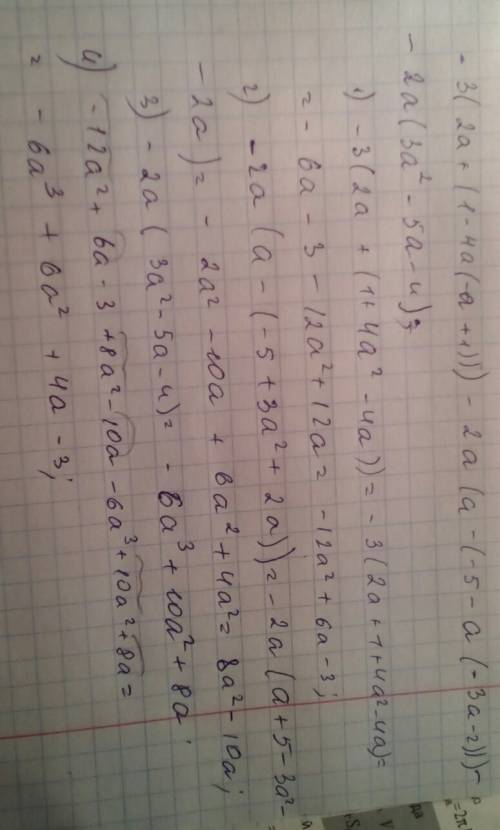 - 3(2a + (1 - 4a(-a + 1))) - 2a (a - (-5 - a (-3a - 2))) -
- 2a(3a² - 5a - 4);
1) - 3(2a + (1 + 4a² - 4a)) = - 3(2a + 1 + 4a² - 4a) =
= - 6a - 3 - 12a² + 12a = - 12a² + 6a - 3;
2) - 2a (a - (-5 + 3a² + 2a)) = - 2a (a + 5 - 3a² -
- 2a) = - 2a² - 10a + 6a² + 4a² = 8a² - 10a;
3) - 2a (3a² - 5a - 4) = - 6a³ + 10a² + 8a;
4) - 12a² + 6a - 3 + 8a² - 10a - 6a³ + 10a² + 8a =
= - 6a³ + 6a² + 4a - 3;